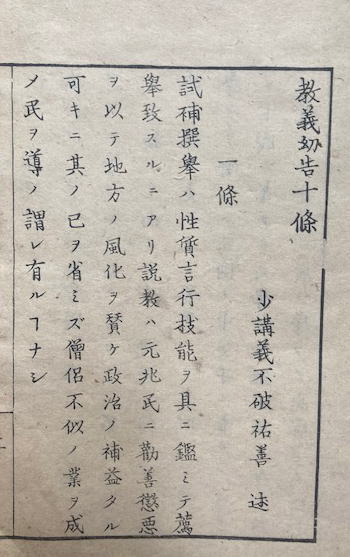 教義幼告十條
少講義不破祐善 述
一條
試補撰舉ハ性質言行技能ヲ具ニ鑑ミテ薦
舉致スルニアリ説教ハ元兆民ニ勸善懲悪
ヲ以テ地方ノ風化ヲ賛ケ政治ノ補益タル
可キニ其ノ已ヲ省ミズ僧侶不似ノ業ヲ成
メ民ヲ導ノ謂レ有ルヿナシ